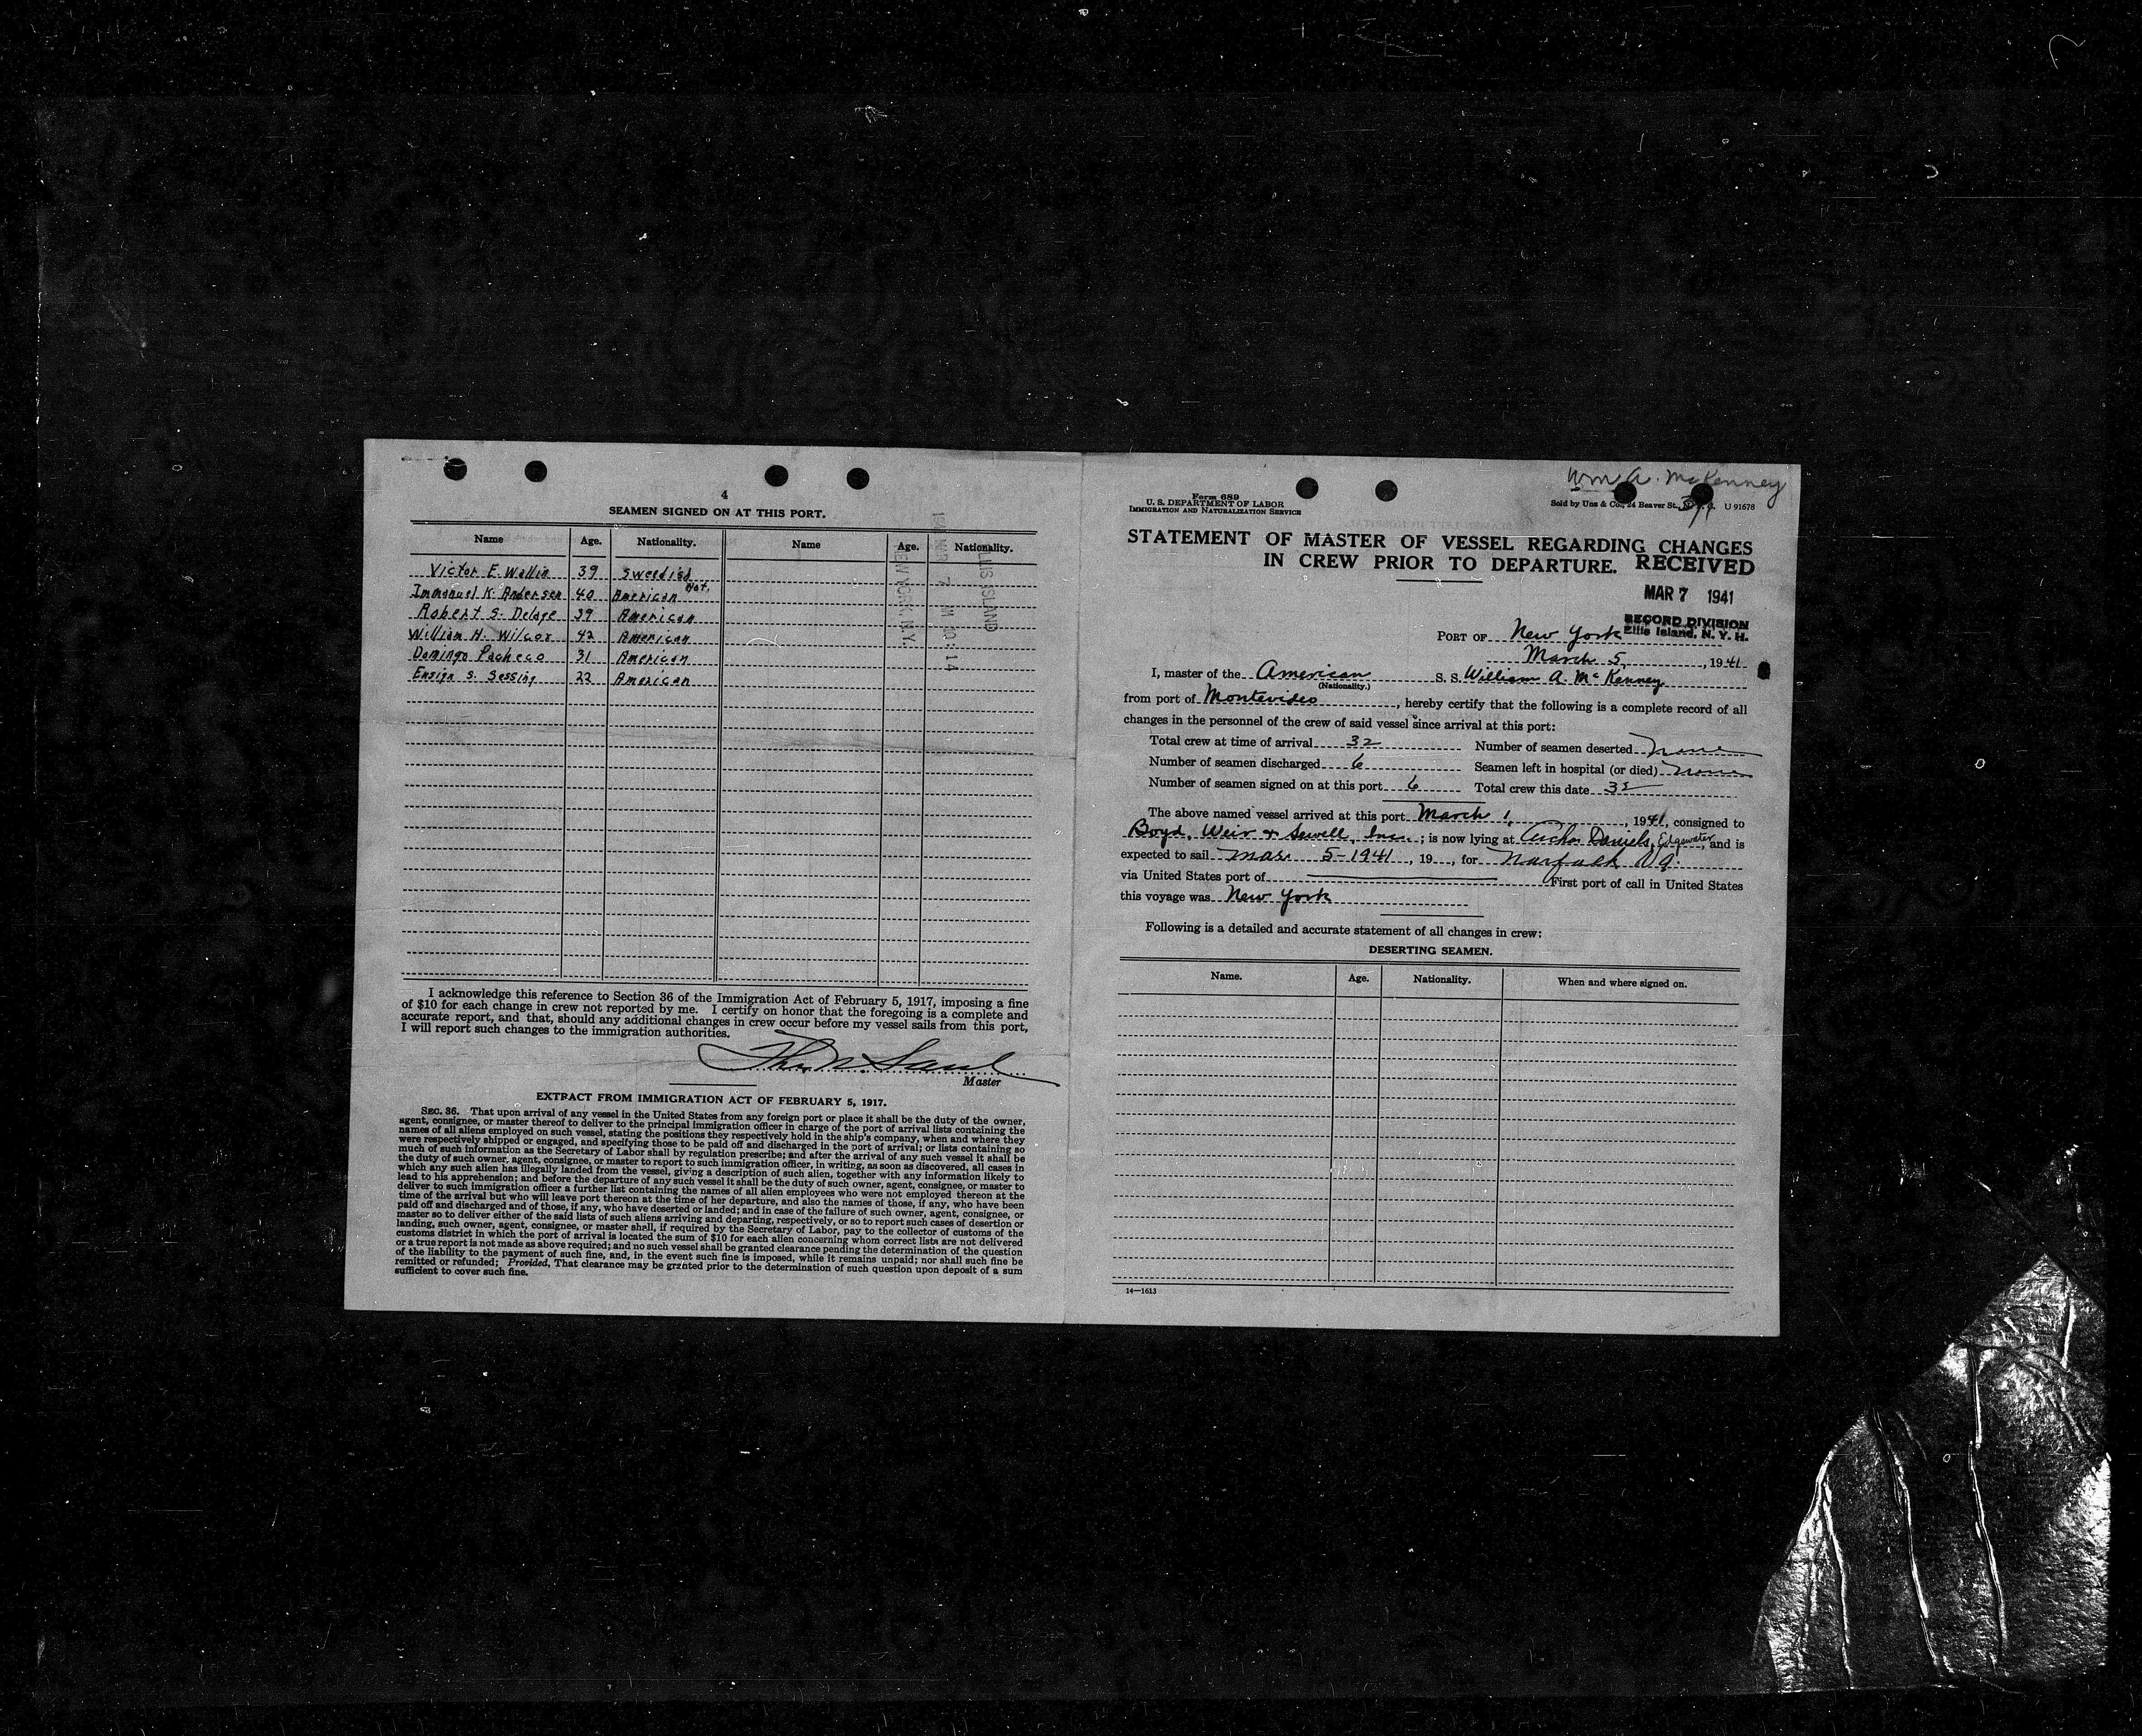 4
SEAMEN SIGNED ON AT THIS PORT.
Name Age. Nationality. Name Age. Nationality.
Victor E. Wallin 39 Sweedish
Immanuel K. Andersen 40 American Nat.
Robert S. Delage 39 American
William H. Wilcox 42 American
Domingo Pacheco 31 American
Ensign S. Sessing 22 American
ELLIS ISLAND
NEW YORK, N.Y.
I acknowledge this reference to Section 36 of the Immigration Act of February 5, 1917, imposing a fine
of $10 for each change in crew not reported by me. I certify on honor that the foregoing is a complete and
accurate report, and that, should any additional changes in crew occur before my vessel sails from this port,
I will report such changes to the immigration authorities.
Master
EXTRACT FROM IMMIGRATION ACT OF FEBRUARY 5, 1917.
SEC. 36. That upon arrival of any vessel in the United States from any foreign port or place it shall be the duty of the owner,
agent, consignee, or master thereof to deliver to the principal immigration officer in charge of the port of arrival lists containing the
names of all aliens employed on such vessel, stating the positions they respectively hold in the ship's company, when and where they
were respectively shipped or engaged, and specifying those to be paid off and discharged in the port of arrival; or lists containing so
much of such information as the Secretary of Labor shall by regulation prescribe; and after the arrival of any such vessel it shall be
the duty of such owner, agent, consignee, or master to report to such immigration officer, in writing, as soon as discovered, all cases in
which any such alien has illegally landed from the vessel, giving a description of such alien, together with any information likely to
lead to his apprehension; and before the departure of any such vessel it shall be the duty of such owner, agent, consignee, or master to
deliver to such immigration officer a further list containing the names of all alien employees who were not employed thereon at the
time of the arrival but who will leave port thereon at the time of her departure, and also the names of those, if any, who have been
paid off and discharged and of those, if any, who have deserted or landed; and in case of the failure of such owner, agent, consignee, or
master so to deliver either of the said lists of such aliens arriving and departing, respectively, or so to report such cases of desertion or
landing, such owner, agent, consignee, or master shall, if required by the Secretary of Labor, pay to the collector of customs of the
customs district in which the port of arrival is located the sum of $10 for each alien concerning whom correct lists are not delivered
or a true report is not made as above required; and no such vessel shall be granted clearance pending the determination of the question
of the liability to the payment of such fine, and, in the event such fine is imposed, while it remains unpaid; nor shall such fine be
remitted or refunded; Provided, That clearance may be granted prior to the determination of such question upon deposit of a sum
sufficient to cover such fine.
Wm A. McKenney
Form 689
U. S. DEPARTMENT OF LABOR
IMMIGRATION AND NATURALIZATION SERVICE
Sold by Unz & Co., 24 Beaver St., U 91678
STATEMENT OF MASTER OF VESSEL REGARDING CHANGES
IN CREW PRIOR TO DEPARTURE. RECEIVED
MAR 7 1941
RECORD DIVISION
Ellis Island, N. Y. H.
PORT OF New York
March 5, 1941
I, master of the American S. S. William A. McKenney
(Nationality.)
from port of Montevideo, hereby certify that the following is a complete record of all
changes in the personnel of the crew of said vessel since arrival at this port:
Total crew at time of arrival 32 Number of seamen deserted none
Number of seamen discharged 6 Seamen left in hospital (or died) none
Number of seamen signed on at this port 6 Total crew this date 32
The above named vessel arrived at this port March 1, 1941, consigned to
Boyd, Weir & Sewell, Inc.; is now lying at Archer Daniels, Edgewater, and is
expected to sail Mar. 5-1941, 19, for Norfolk Va.
via United States port of First port of call in United States
this voyage was New York
Following is a detailed and accurate statement of all changes in crew:
DESERTING SEAMEN.
Name. Age. Nationality. When and where signed on.
14—1613